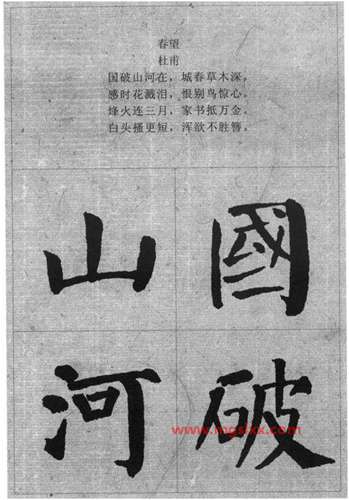 春望
杜甫
国破山河在，城春草木深，
感时花溅泪，恨别鸟惊心。
烽火连三月，家书抵万金。
白头搔更短，浑欲不胜簪。
國破
山河